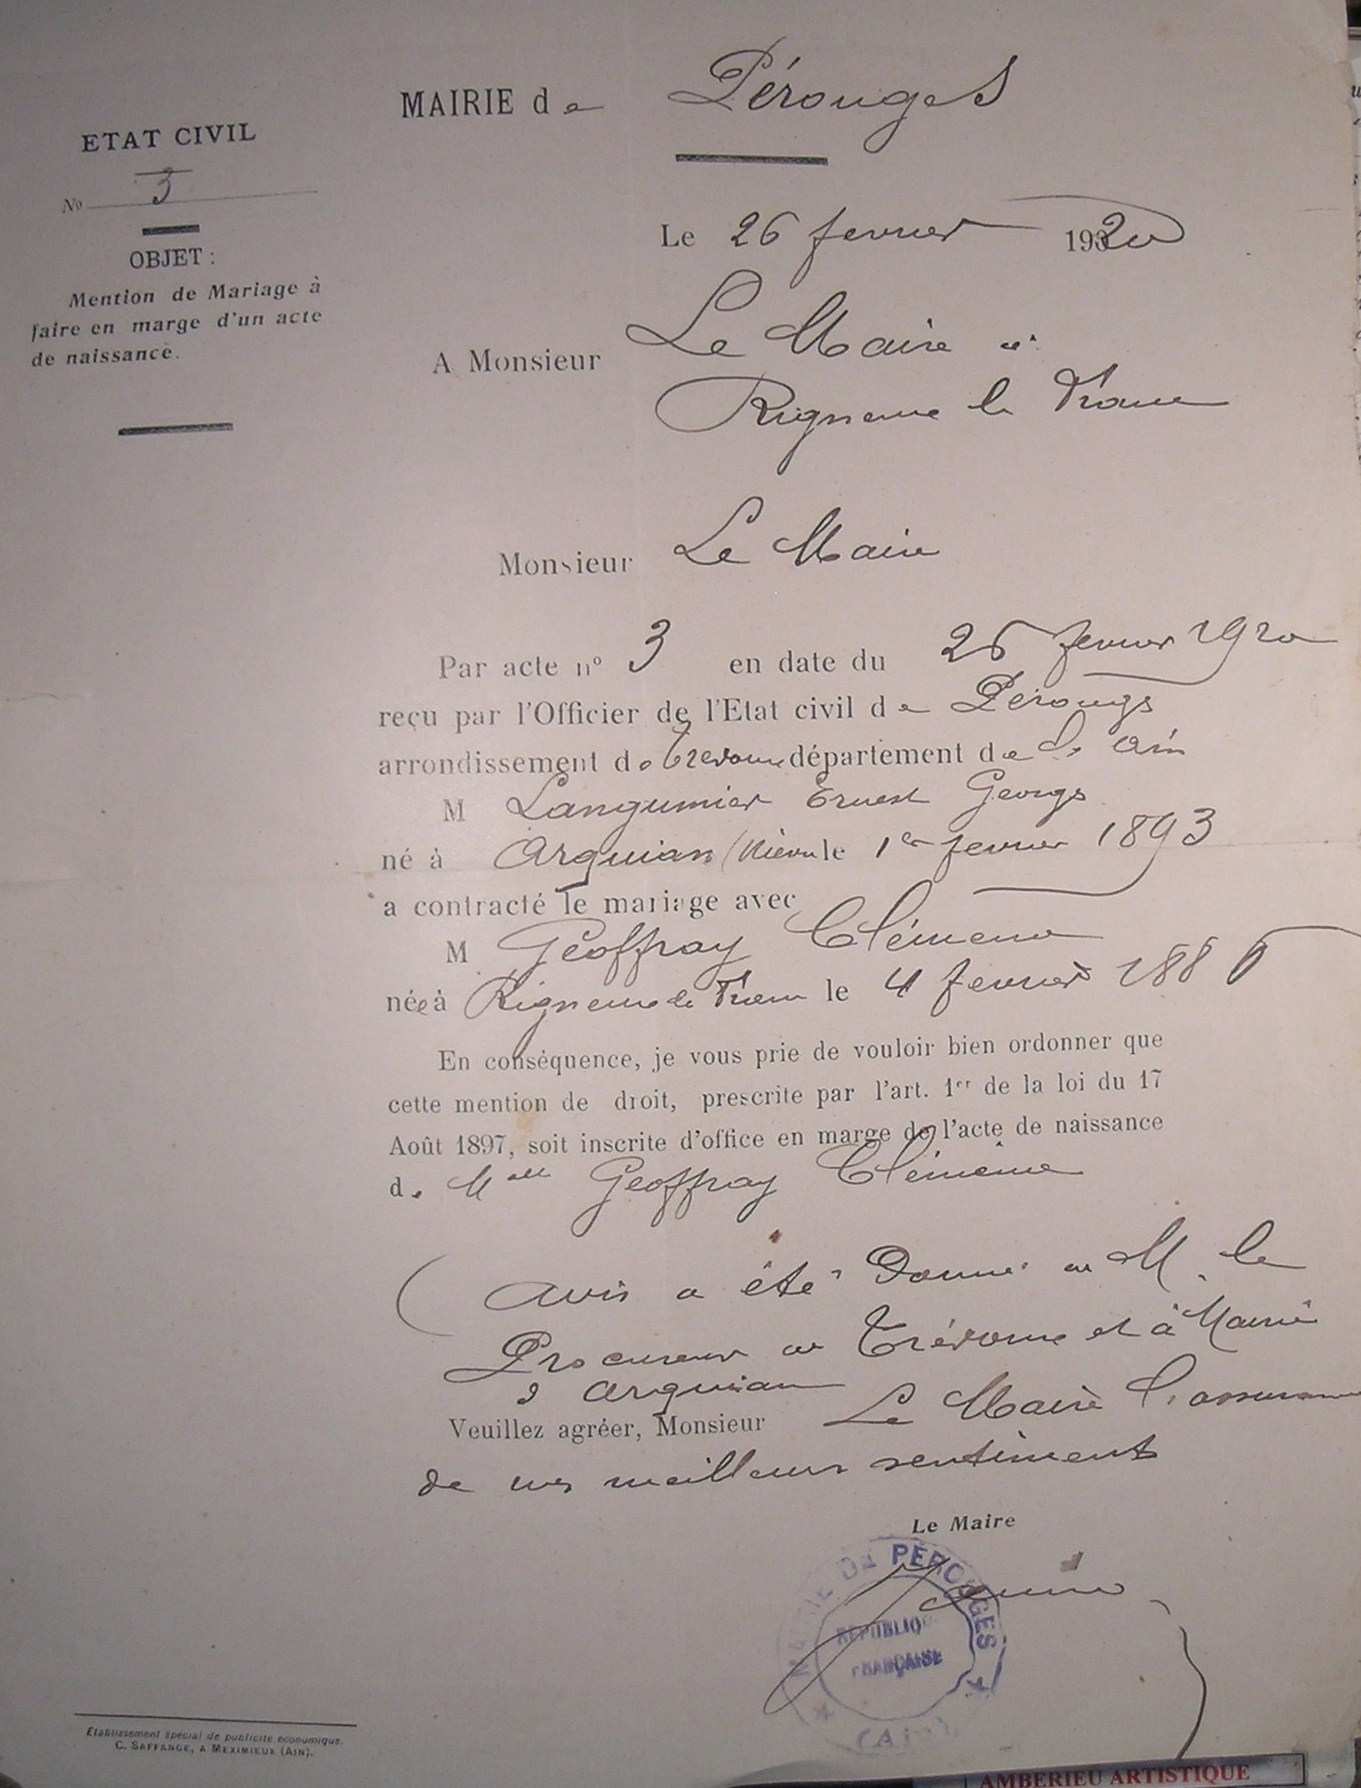 MAIRIE de Pérouges
ETAT CIVIL
No 3
OBJET :
Mention de Mariage à
faire en marge d'un acte
de naissance.
Le 26 fevrier 1920
A Monsieur Le Maire
Rigneux le Franc
Monsieur Le Maire
Par acte n° 3 en date du 26 fevrier 1920
reçu par l'Officier de l'Etat civil de Pérouges
arrondissement de Trevoux département de l'Ain
M Langumier Ernest Georges
né à Arquian (Nièvre le 1er fevrier 1893
a contracté le mariage avec
M Geoffray Clémence
née à Rigneux le Franc le 4 fevrier 188
En conséquence, je vous prie de vouloir bien ordonner que
cette mention de droit, prescrite par l'art. 1er de la loi du 17
Août 1897, soit inscrite d'office en marge de l'acte de naissance
de Melle Geoffray Clémence
(avis a été Donné au M. le
Procureur de Trévoux et à Mairie
d arquian
Veuillez agréer, Monsieur Le Maire l'assurance
de mes meilleurs sentiments
Le Maire
MAIRIE DE PÉROUGES
REPUBLIQUE
FRANÇAISE
(AIN)
Etablissement spécial de publicité économique.
C. SAFFANGE, A MEXIMIEUX (AIN).
AMBERIEU ARTISTIQUE